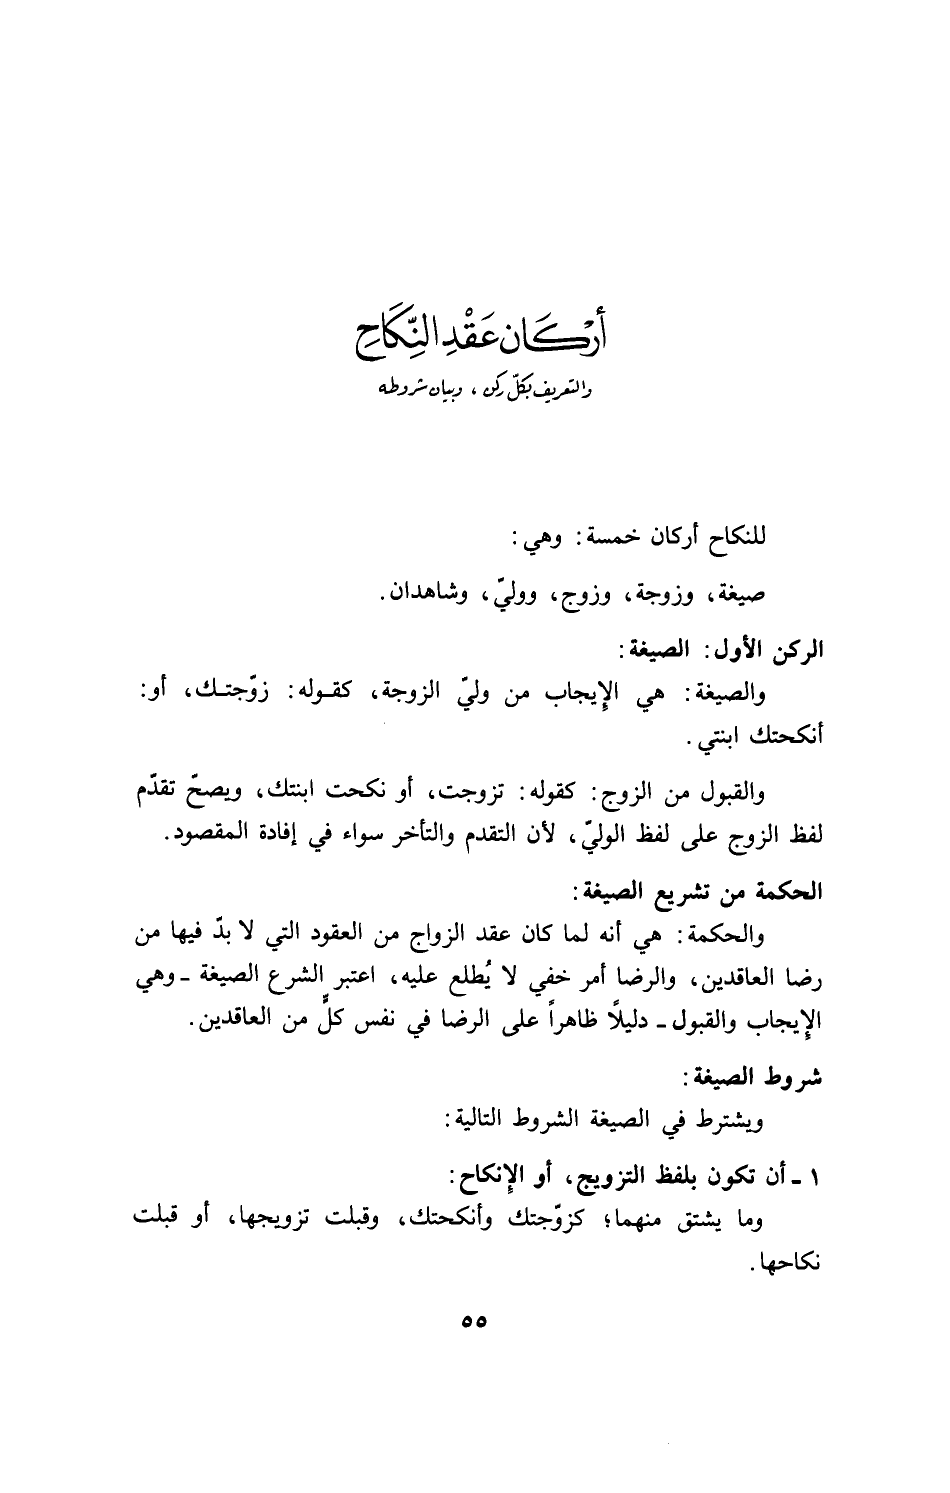 أَرْكَان عَقْدِ النِّكَاحِ
والتعريف بكلّ ركن ، وبيان شروطه
للنكاح أركان خمسة: وهي:
صيغة، وزوجة، وزوج، ووليّ، وشاهدان.
الركن الأول: الصيغة:
والصيغة: هي الإيجاب من وليّ الزوجة، كقـوله: زوّجتـك، أو:
أنكحتك ابنتي.
والقبول من الزوج: كقوله: تزوجت، أو نكحت ابنتك، ويصحّ تقدّم
لفظ الزوج على لفظ الوليّ، لأن التقدم والتأخر سواء في إفادة المقصود.
الحكمة من تشريع الصيغة:
والحكمة: هي أنه لما كان عقد الزواج من العقود التي لا بدّ فيها من
رضا العاقدين، والرضا أمر خفي لا يُطلع عليه، اعتبر الشرع الصيغة ـ وهي
الإيجاب والقبول ـ دليلًا ظاهراً على الرضا في نفس كلٍّ من العاقدين.
شروط الصيغة:
ويشترط في الصيغة الشروط التالية:
١ ـ أن تكون بلفظ التزويج، أو الإنكاح:
وما يشتق منهما؛ كزوّجتك وأنكحتك، وقبلت تزويجها، أو قبلت
نكاحها.
٥٥